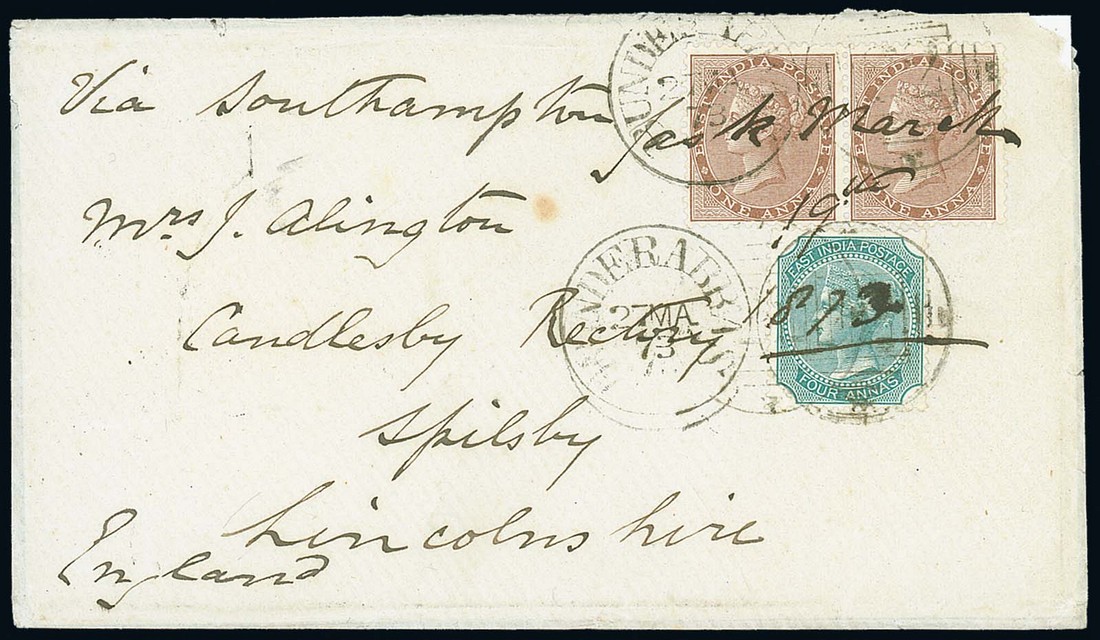 Via Southampton
Jask March
19th
1873
Mrs J. Alington
Candlesby Rectory
Spilsby
Lincolnshire
England
EAST INDIA POSTAGE
ONE ANNA
EAST INDIA POSTAGE
ONE ANNA
EAST INDIA POSTAGE
FOUR ANNAS
BUNDER ABBAS
27 MA
73